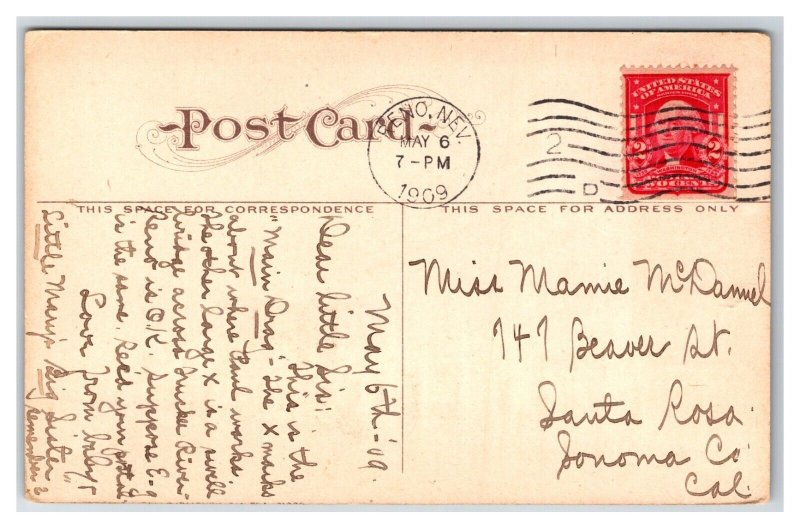 Post Card
RENO, NEV.
MAY 6
7-PM
1909
2
D
UNITED STATES
OF AMERICA
2 2
TWO CENTS
THIS SPACE FOR CORRESPONDENCE
THIS SPACE FOR ADDRESS ONLY
May 6th - '09.
Dear little Sis:
This is the
"Main Drag" - the x marks
about where Paul works.
The other large x is a swell
bridge across Truckee River.
Reno is O.K. Suppose E-a
is the same. Rec'd your postal.
Love from baby &
Little Mary's Big Sister"
remember?
Miss Mamie McDannel
747 Beaver St.
Santa Rosa
Sonoma Co.
Cal.